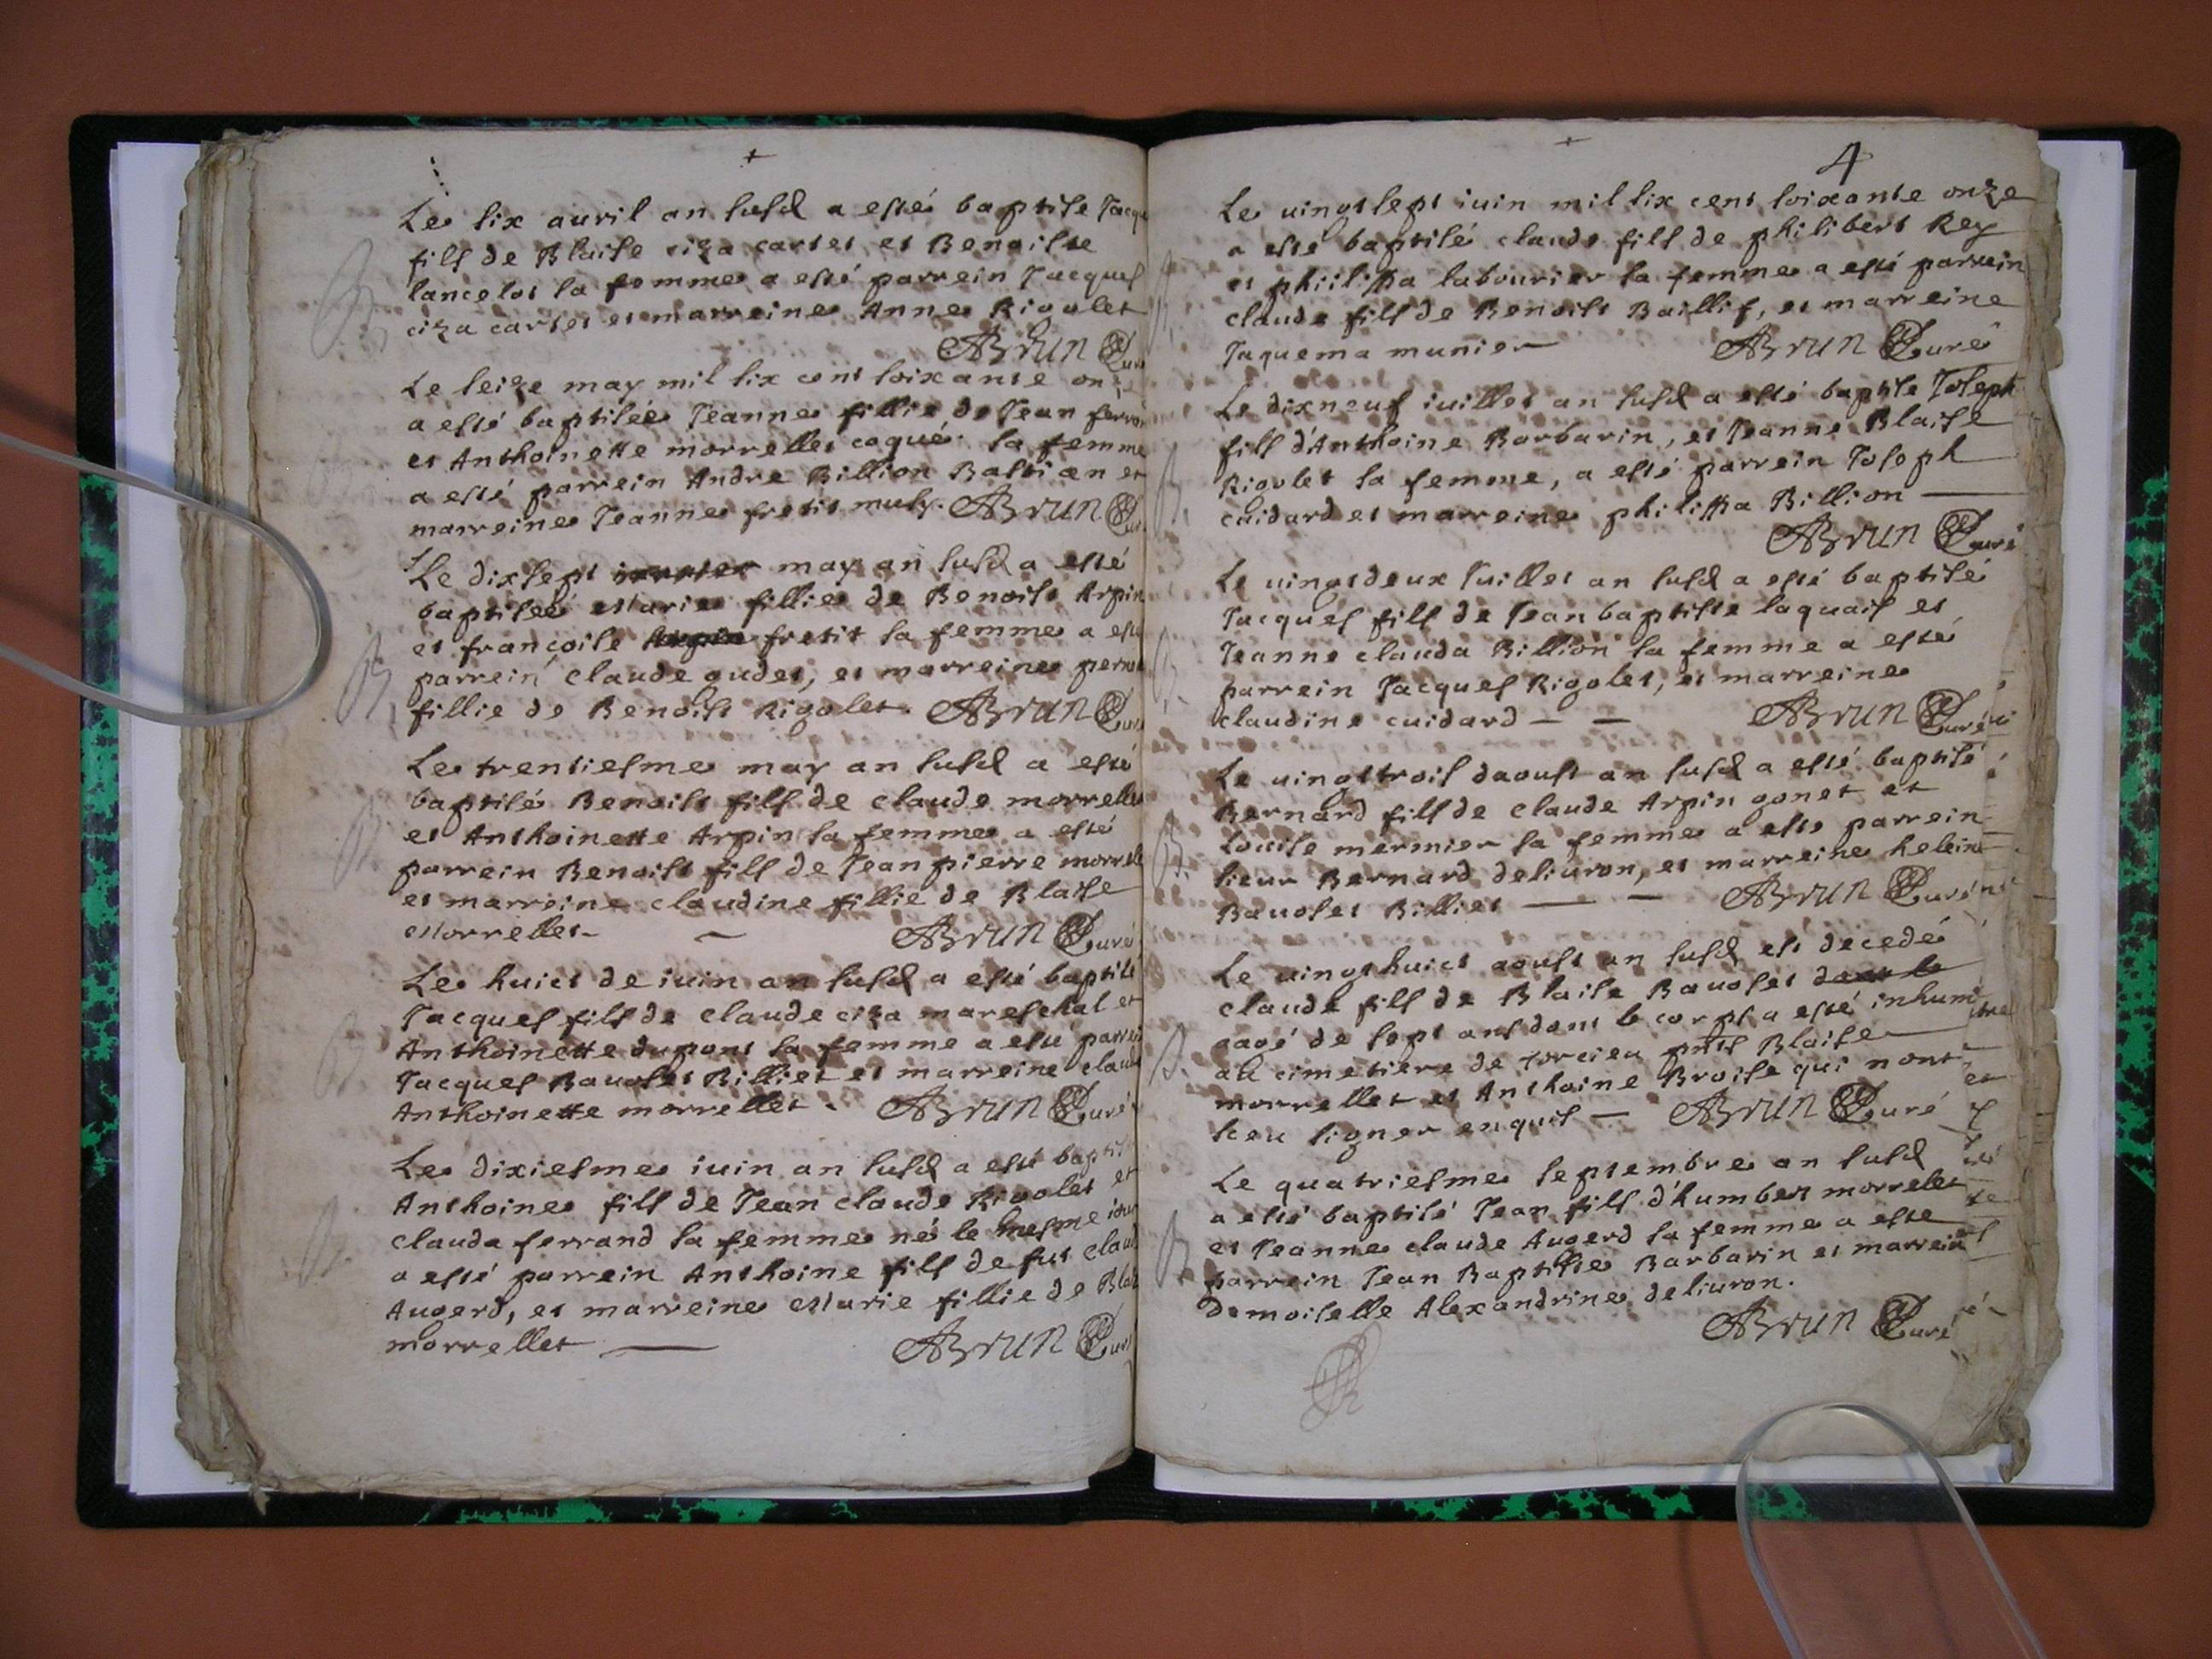 Le six auril an susd a esté baptise Jacqu
fils de Blaise ciza cartet et Benoiste
lancelot sa femme a esté parrein Jacques
ciza cartet et marreine Anne Rigolet
ABrun Cur
Le seize may mil six cent soixante on
a esté baptisée Jeanne fillie de Jean
et Anthoinette morrellet coqué sa femme
a esté parrein Andre Billion Bastian et
marreine Jeanne fretit muly. ABrun Cur
Le dixsept may an susd a esté
baptisée Marie fillie de Benoist Arpin
et françoise Arpin fretit sa femme a esté
parrein claude gudet, et marreine
fillie de Benoist Rigolet. ABrun Cur
Le trentiesme may an susd a esté
baptisé Benoist fils de claude morrelle
et Anthoinette Arpin sa femme a esté
parrein Benoist fils de Jean pierre morrelle
et marreine claudine fillie de Blaise
Morrellet ABrun Curé
Le huict de iuin an susd a esté baptisé
Jacques fils de claude ciza mareschal et
Anthoinette dupont sa femme a esté parrei
Jacques Bauoset Billiet et marreine claud
Anthoinette morrellet. ABrun Curé
Le dixiesme iuin an susd a esté bapti
Anthoine fils de Jean claude Rigolet et
clauda ferrand sa femme né le mesme iour
a esté parrein Anthoine fils de fut claud
Augerd, et marreine Marie fillie de Blai
morrellet ABrun Cur
4
Le uingtsept iuin mil six cent soixante onze
a esté baptisé claude fils de philibert Rey
et philippa labourier sa femme a esté parrein
claude fils de Benoist Baillif, et marreine
Jaquema munier ABrun Curé
Le dixneuf iuillet an susd a esté baptise Joseph
fils d'Anthoine Barbarin, et Jeanne Blaise
Rigolet sa femme, a esté parrein Joseph
cuidard et marreine philippa Billion
ABrun Curé
Le uingtdeux Iuillet an susd a esté baptisé
Jacques fils de Jean baptiste laquais et
Jeanne clauda Billion sa femme a esté
parrein Jacques Rigolet, et marreine
claudine cuidard ABrun Curé
Le uingttrois daoust an susd a esté baptisé
Bernard fils de claude Arpin gonet et
Louise mermier sa femme a esté parrein
sieur Bernard deliuron, et marreine heleine
Bauoset Billiet ABrun Curé
Le uingthuict aoust an susd est decedé
claude fils de Blaise Bauoset
aagé de sept ans dont le corps a esté inhumé
au cimetiere de Torcieu pnts Blaise
morrellet et Anthoine Broise qui n ont
sceu signer enquis ABrun Curé
Le quatriesme septembre an susd
a esté baptisé Jean fils d'humbert morrellet
et Jeanne claude Augerd sa femme a esté
parrein Jean Baptiste Barbarin et marrein
Demoiselle Alexandrine deliuron.
ABrun Curé